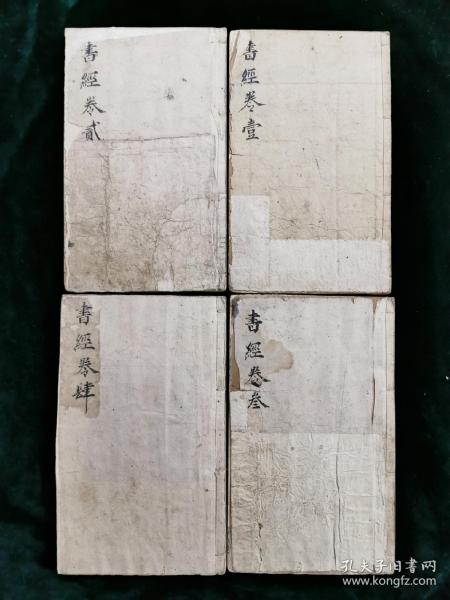 書經卷壹
書經卷貳
書經卷叁
書經卷肆
孔夫子旧书网
www.kongfz.com